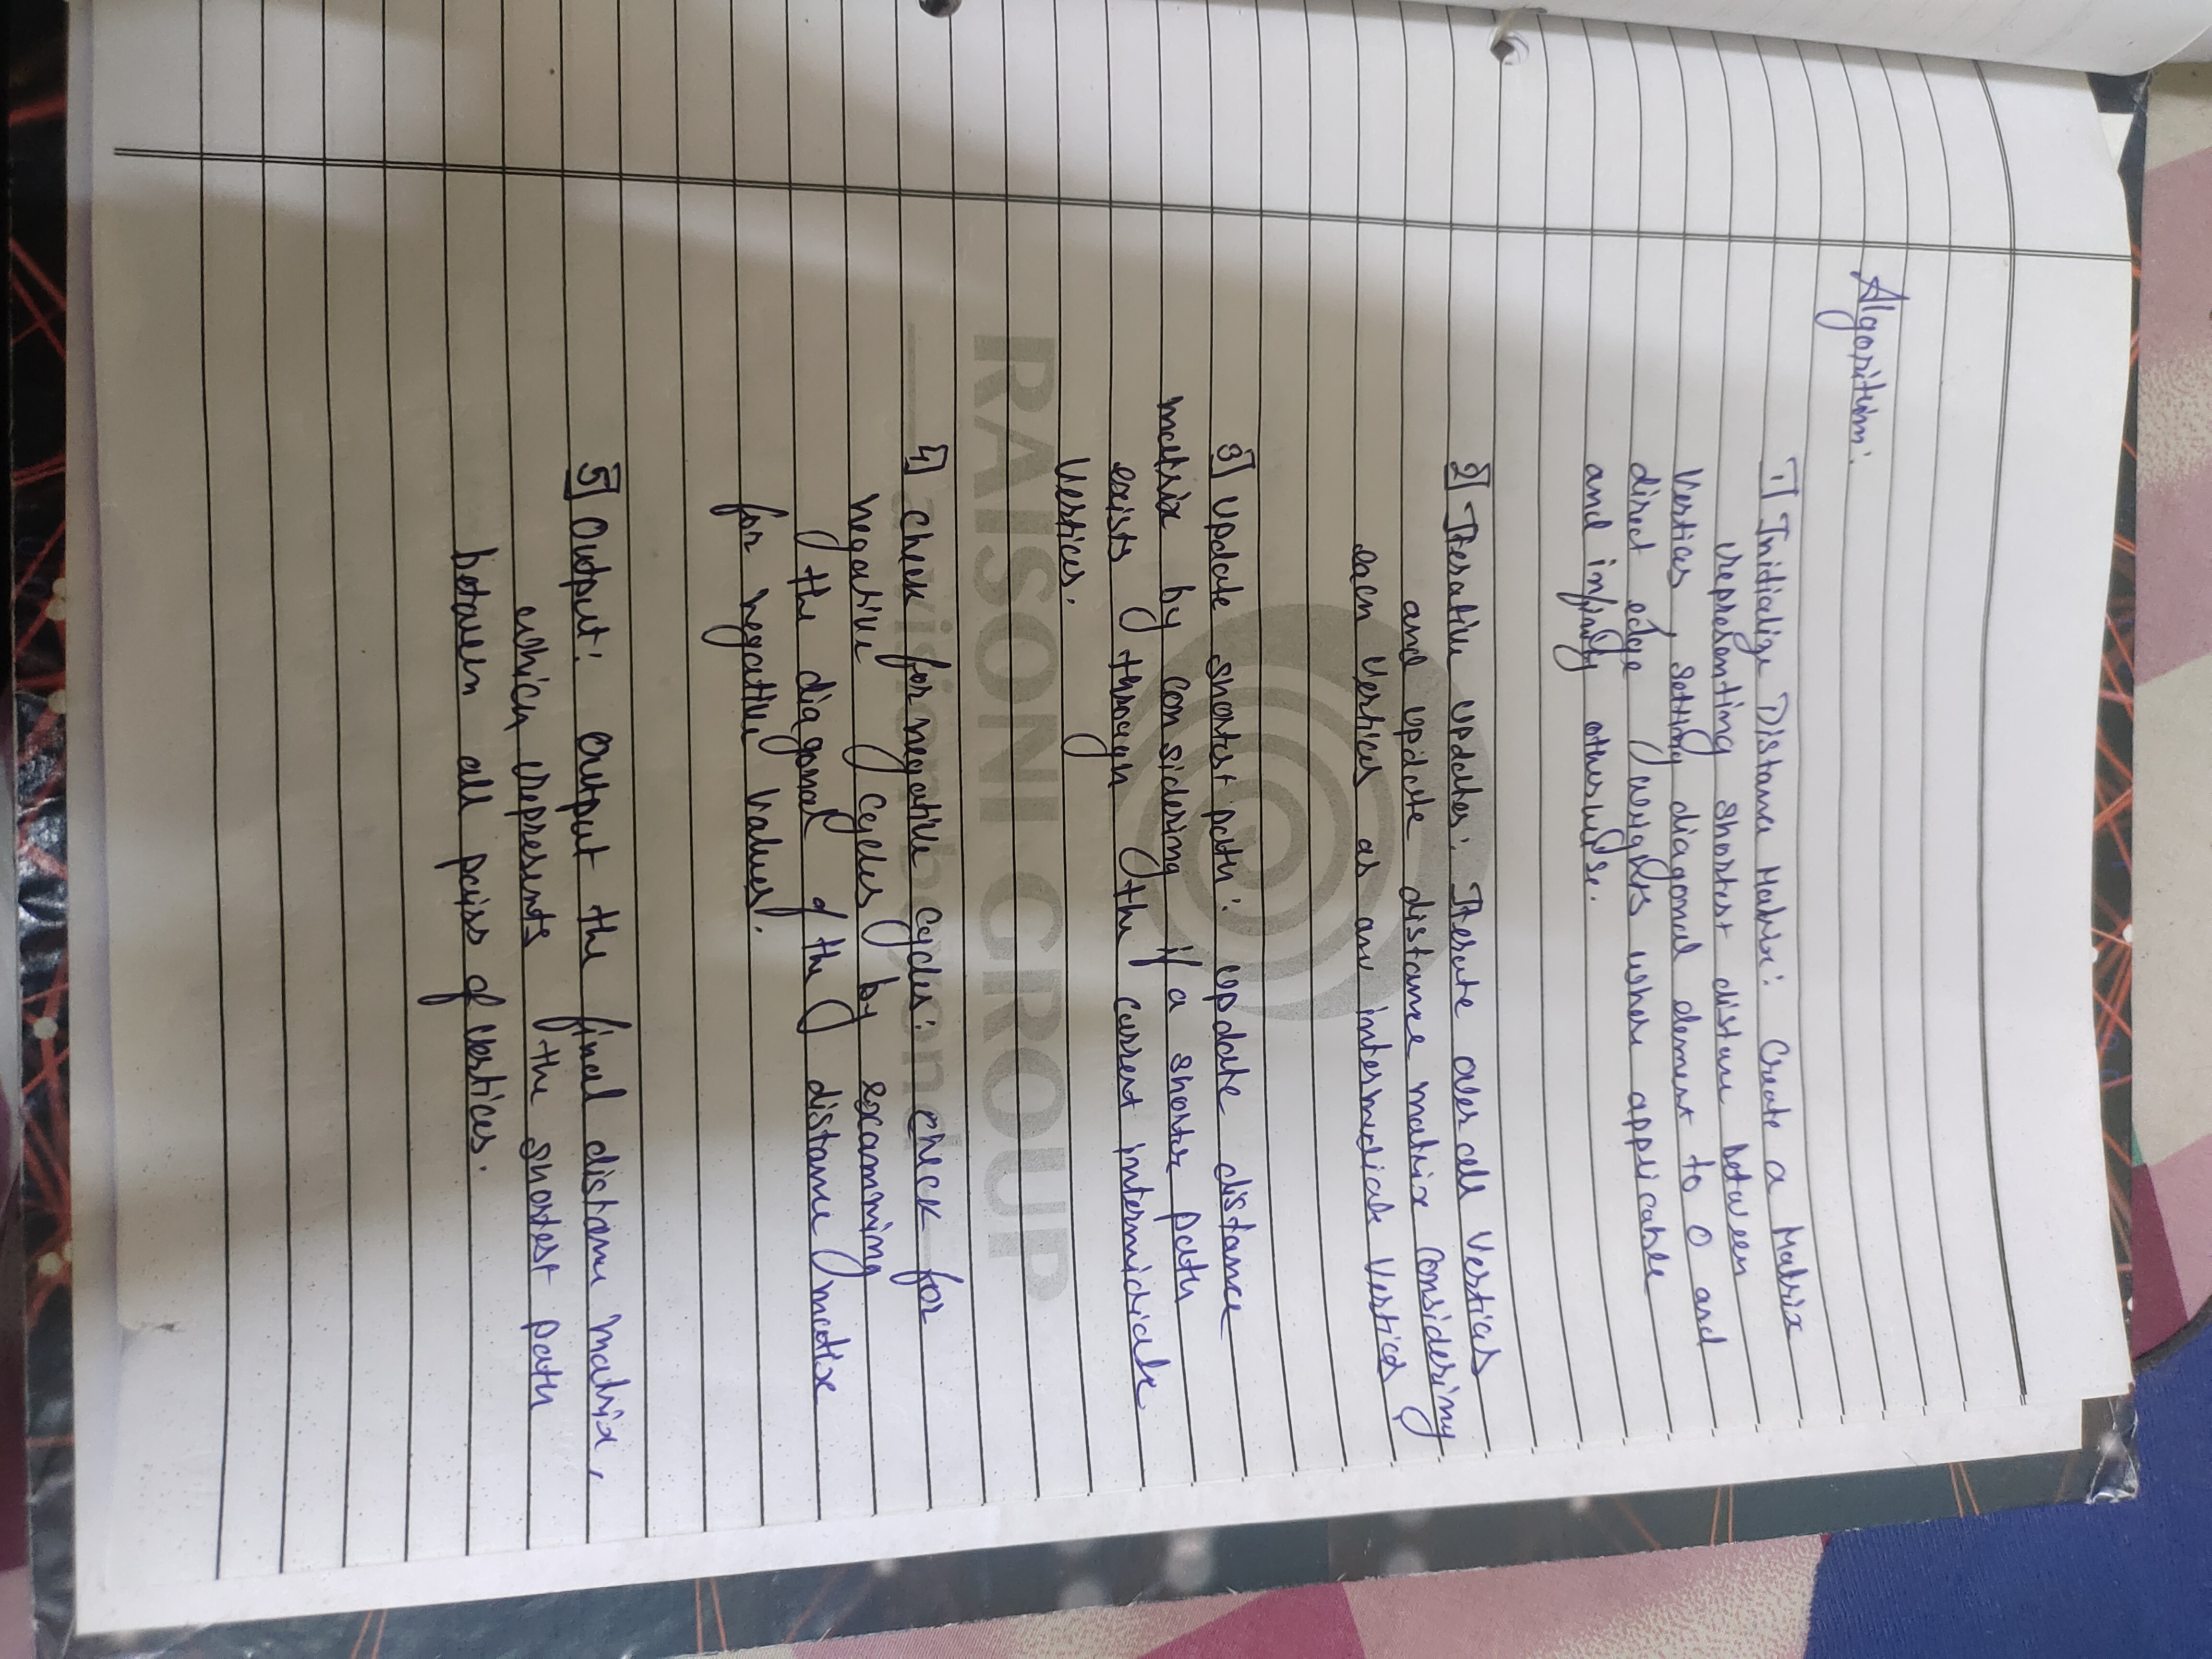 Algorithm:
1] Initialize Distance Matrix: Create a Matrix
representing shortest distance between
Vertices, setting diagonal element to 0 and
direct edge weights where applicable
and infinity otherwise.
2] Iterative Updates: Iterate over all Vertices
and update distance matrix considering
each Vertices as an intermediate Vertices.
3] Update shortest path: Update distance
matrix by considering if a shorter path
exists through the current intermidiate
Vertices.
RAISONI GROUP
a vision beyond
4] Check for negative cycles: check for
negative cycles by examining
the diagonal of the distance matix
for negative values.
5] Output: Output the final distance matrix,
which represents the shortest path
between all pairs of vertices.